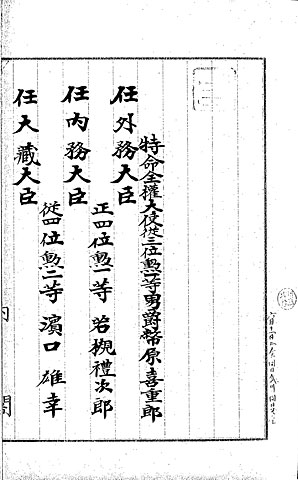 特命全權大使從三位勲一等男爵幣原喜重郎
任外務大臣
正四位勲一等 若槻禮次郎
任内務大臣
從四位勲二等 濱口雄幸
任大藏大臣
内閣